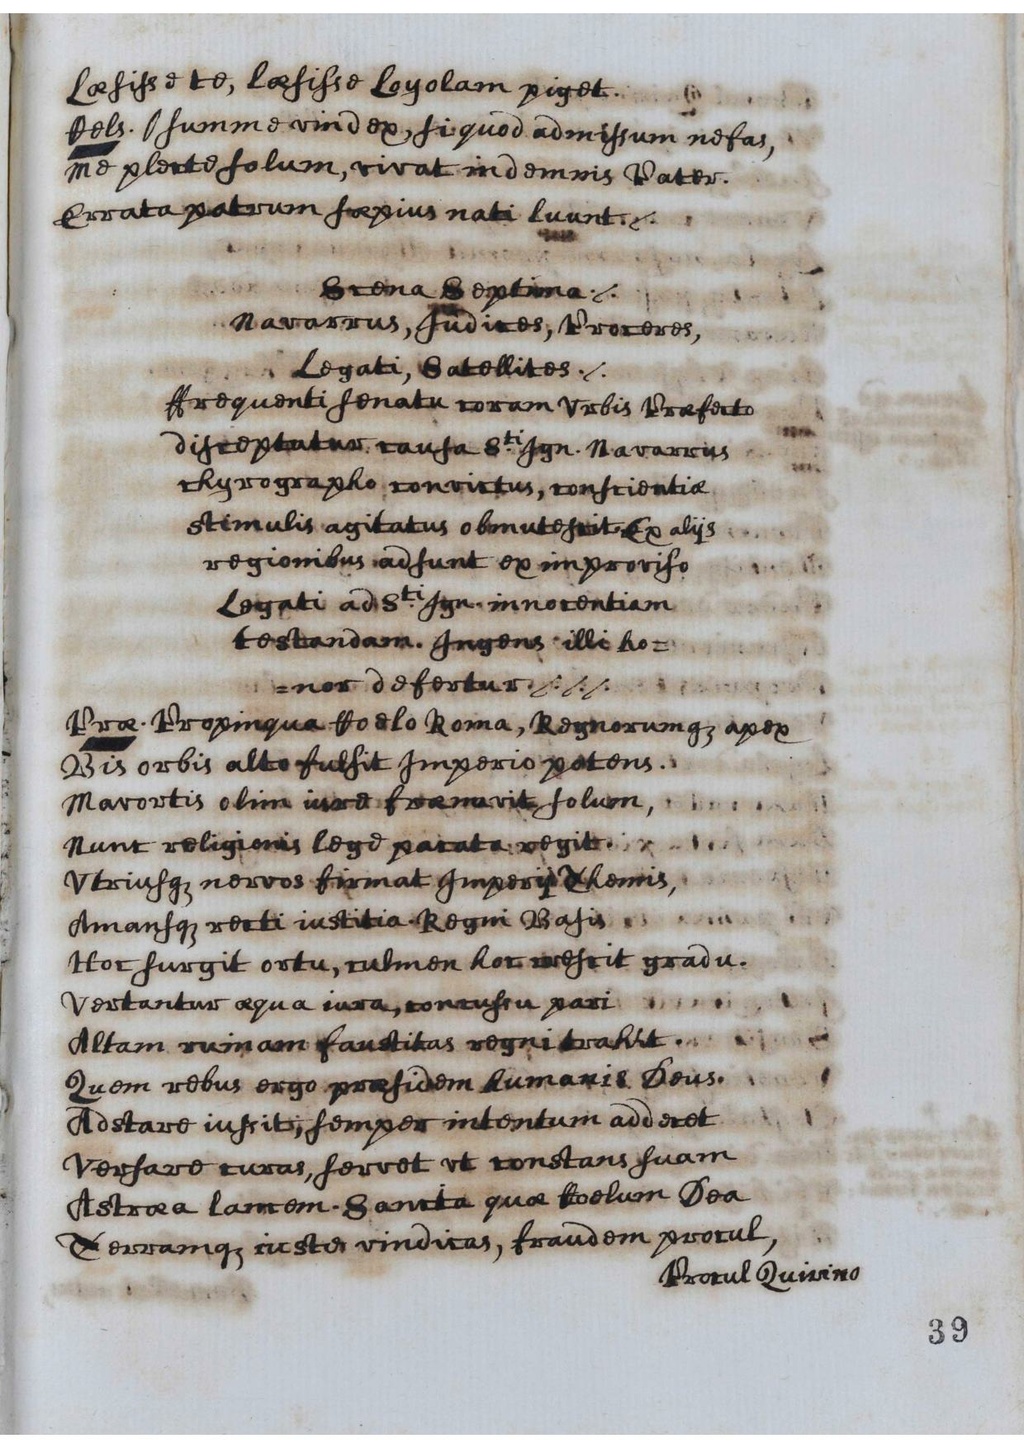 Læsisse te, læsisse Loyolam piget.
Cæls. O summe vindex, si quod admissum nefas,
Me plecte solum, vivat indemnis Pater.
Errata patrum sæpius nati luunt ./.
Scena Septima ./.
Navarrus, Judices, Proceres,
Legati, Satellites ./.
Frequenti senatu coram Vrbis Præfecto
disceptatur causa S.ti Ign. Navarrus
chyrographo convictus, conscientiæ
stimulis agitatus obmutescit. Ex alijs
regionibus adsunt ex improviso
Legati ad S.ti Ign. innocentiam
testandam. Ingens illi ho=
=nor defertur ./././.
Præ. Propinqua Cœlo Roma, Regnorumq; apex
Bis orbis alto fulsit Imperio potens.
Mavortis olim iure frænavit solum,
Nunc religionis lege pacata regit.
Vtriusq; nervos firmat Imperij Themis,
Amansq; recti iustitia. Regni Basis
Hoc surgit ortu, culmen hoc crescit gradu.
Vertantur æqua iura, concussu pari
Altam ruinam faustitas regni trahit.
Quem rebus ergo præsidem humanis Deus.
Adstare iussit, semper intentum addecet
Versare curas, servet vt constans suam
Astræa lancem. Sancta quæ Cœlum Dea
Terramq; iuste vindicas, fraudem procul,
Procul Quirino
39